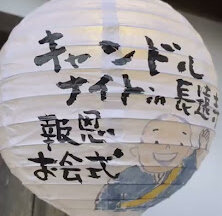 キャンドル
ナイト in 長遠寺
報恩
お会式